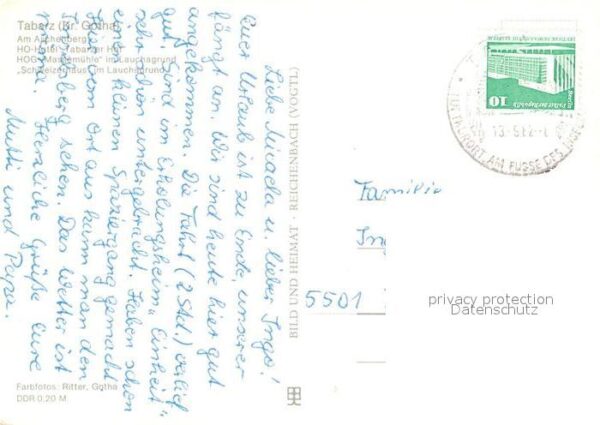 Tabarz (Kr. Gotha)
Am Aschenberg
HO-Hotel "Tabarzer Hof"
HOG "Massemühle" im Lauchagrund
"Schweizerhaus" im Lauchagrund
Liebe Micaela u. lieber Ingo!
Euer Urlaub ist zu Ende, unserer
fängt an. Wir sind heute hier gut
angekommen. Die Fahrt (2 Std) verlief
gut. Sind im Erholungsheim "Einheit"
sehr schön untergebracht. Haben schon
einen kleinen Spaziergang gemacht.
Hier vom Ort aus kann man den
Inselsberg sehen. Das Wetter ist
Herzliche Grüße Eure
Mutti und Papa.
BILD UND HEIMAT · REICHENBACH (VOGTL)
Farbfotos: Ritter, Gotha
DDR 0,20 M
10
13.-9.82
AM FUSSE DES
Familie
Ing
5501
privacy protection
Datenschutz